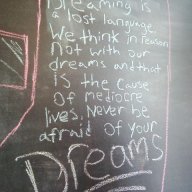 Dreaming is
a lost language.
We think in reason
Not with our
dreams and that
is the cause
of mediocre
lives. Never be
afraid of your
Dreams